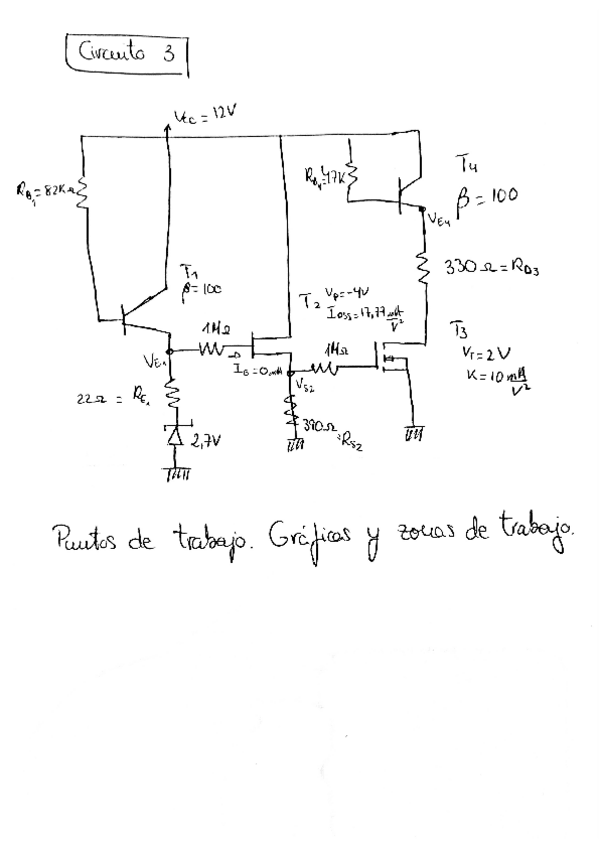 Circuito 3
Vcc = 12V
RB1 = 82KΩ
RB4 = 47K
T4
β = 100
VE4
330Ω = RD3
T1
β = 100
T2 Vp = -4V
IDSS = 17,77 mA/V²
1MΩ
1MΩ
T3
VT = 2V
K = 10 mA/V²
VE1
IG = 0 mA
VS2
22Ω = RE1
2,7V
390Ω = RS2
Puntos de trabajo. Gráficas y zonas de trabajo.